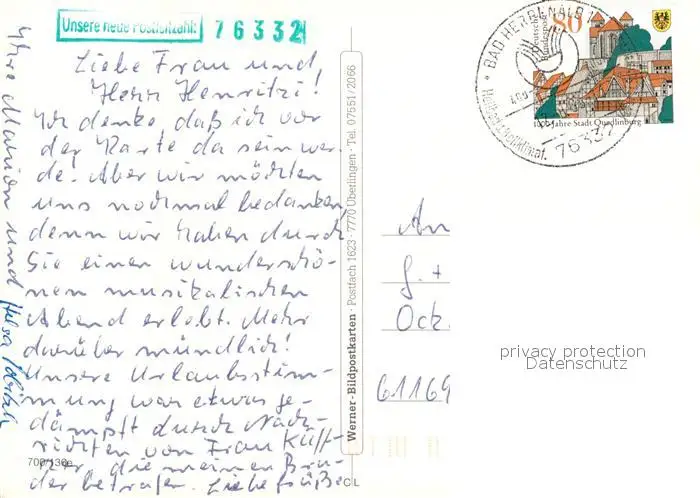 Unsere neue Postleitzahl: 76332
Liebe Frau und
Herr Henritzi!
Ich denke daß ich vor
der Karte da sein wer-
de. Aber wir möchten
uns nochmal bedanken,
denn wir haben durch
Sie einen wunderschö-
nen musikalischen
Abend erlebt. Mehr
darüber mündlich!
Unsere Urlaubsstim-
mung war etwas ge-
dämpft durch Nach-
richten von Frau Küff-
ner, die meinen Bru-
der betrafen. Liebe Grüße
Ihre Marion und
700/136e
Werner-Bildpostkarten · Postfach 1623 · 7770 Überlingen · Tel. 07551/2066
CL
BAD HERRENALB 1
76332
Deutsche Bundespost
80
1000 Jahre Stadt Quedlinburg
An
G. +
Ock.
61169
privacy protection
Datenschutz